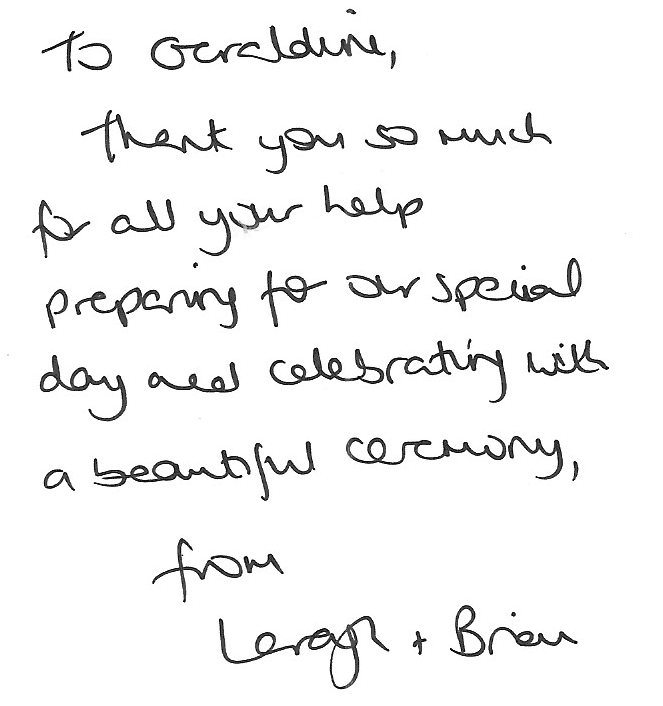 To Geraldine,
thank you so much
for all your help
preparing for our special
day and celebrating with
a beautiful ceremony,
from
+ Brian